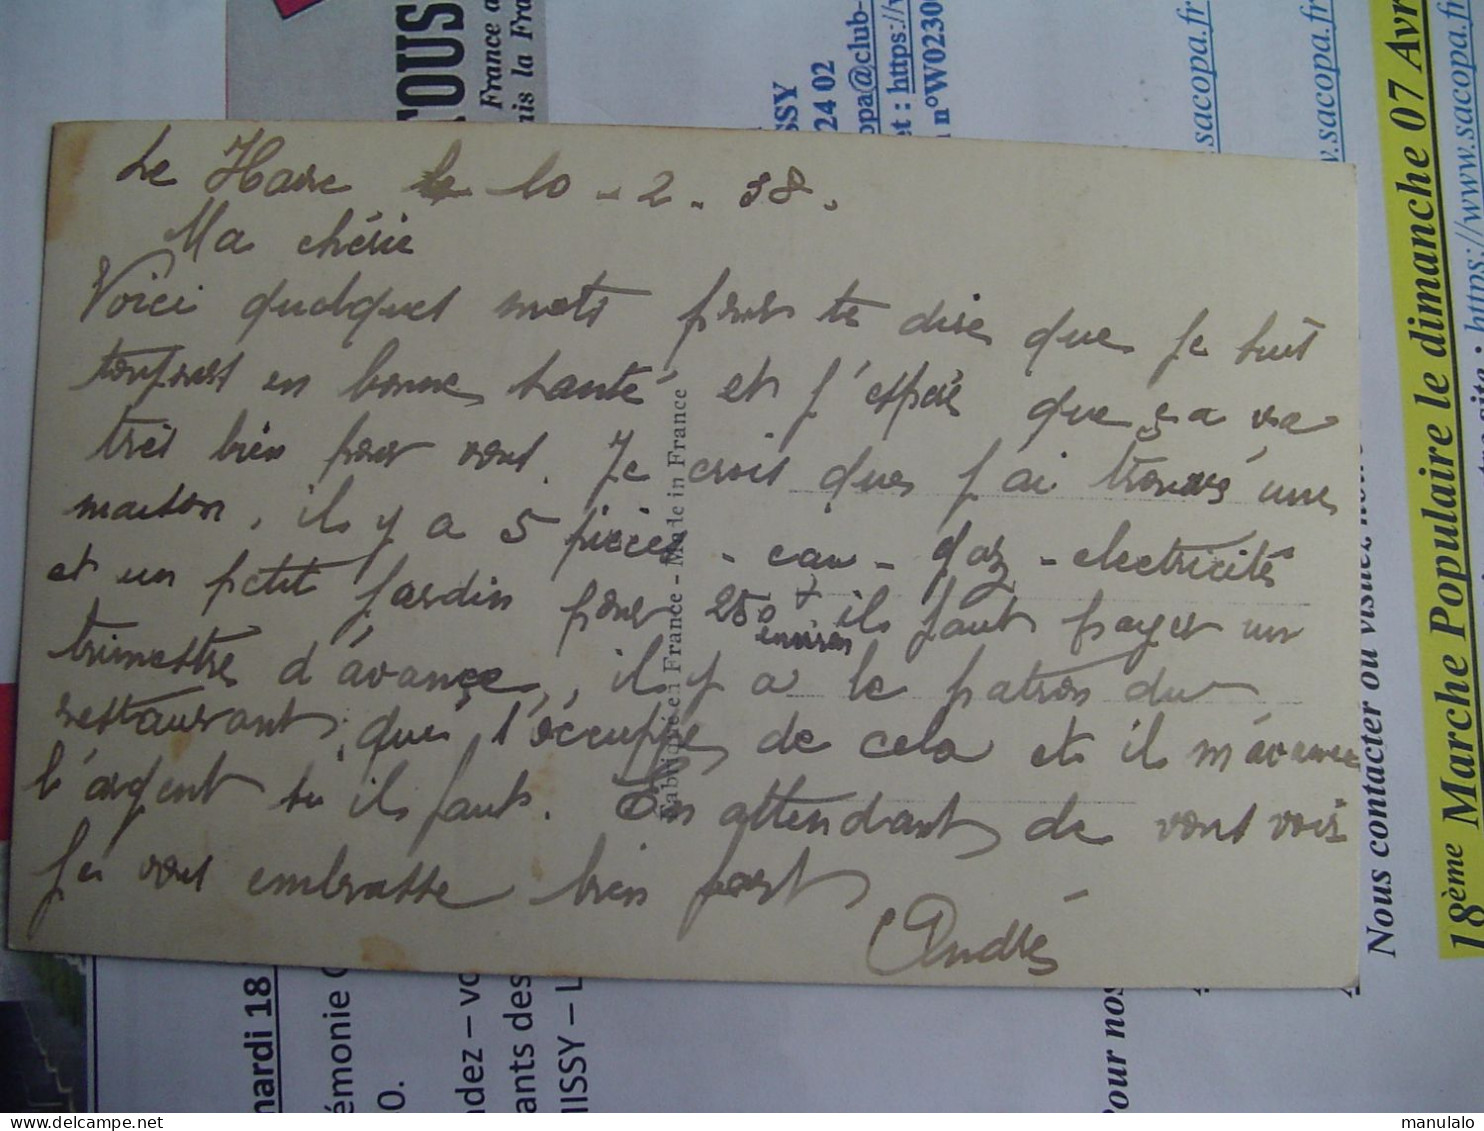 Le Havre le 10 - 2 - 38.
Ma chérie
Voici quelques mots pour te dire que je suis
toujours en bonne santé et j'espère que ça va
très bien pour vous. Je crois que j'ai trouvés une
maison, il y a 5 pièces - eau - gaz - electricités
et un petit jardin pour 250 f environ il faut payer un
trimestre d'avance, il y a le patron du
restaurant que s'occuppe de cela et il m'avance
l'argent si il faut. En attendant de vous voir
Je vous embrasse bien fort
André
Fabriqué en France - Made in France
TOUS
France a
ais la Fra
SSY
24 02
opa@club-
et : https://w
n n°W02230
.sacopa.fr
w.sacopa.fr
https://www.sacopa.fr
Nous contacter ou visitez
18ème Marche Populaire le dimanche 07 Avr
mardi 18
émonie
0.
ndez – vo
ants des
IISSY – L
Pour nos
www.delcampe.net
manulalo